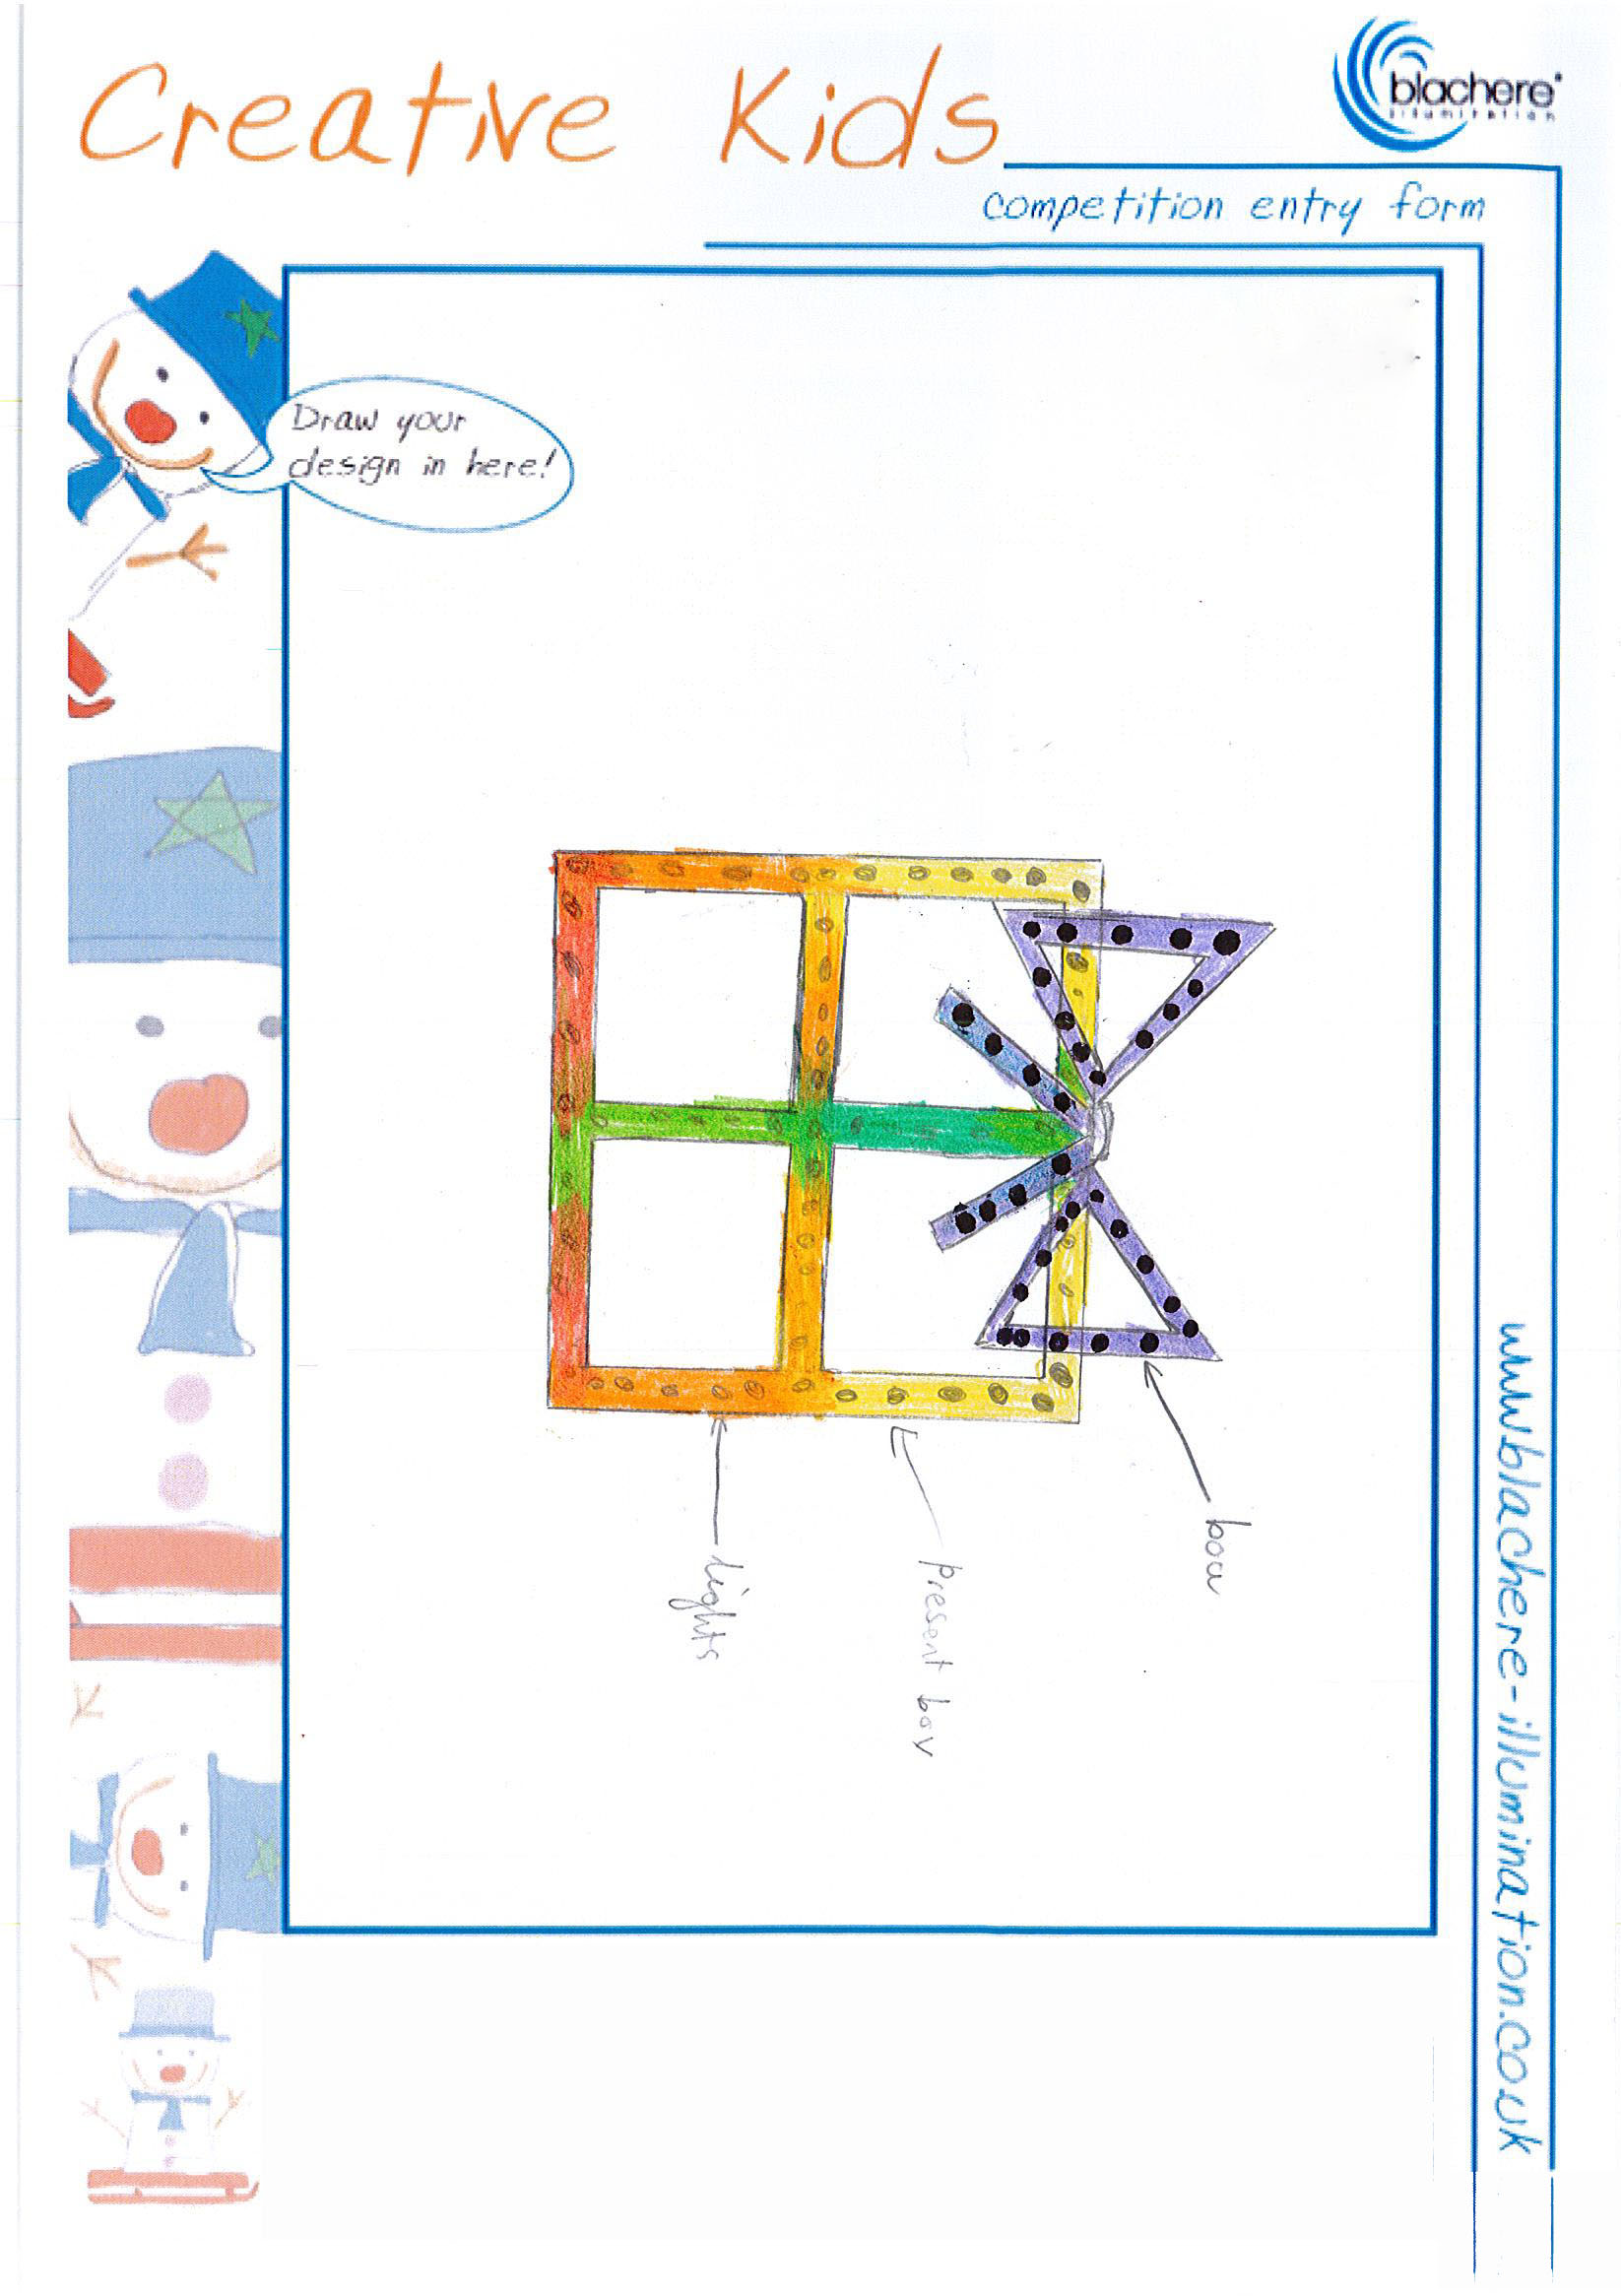 Creative Kids
blachere
illumination
competition entry form
Draw your
design in here!
bow
present box
lights
www.blachere-illumination.co.uk